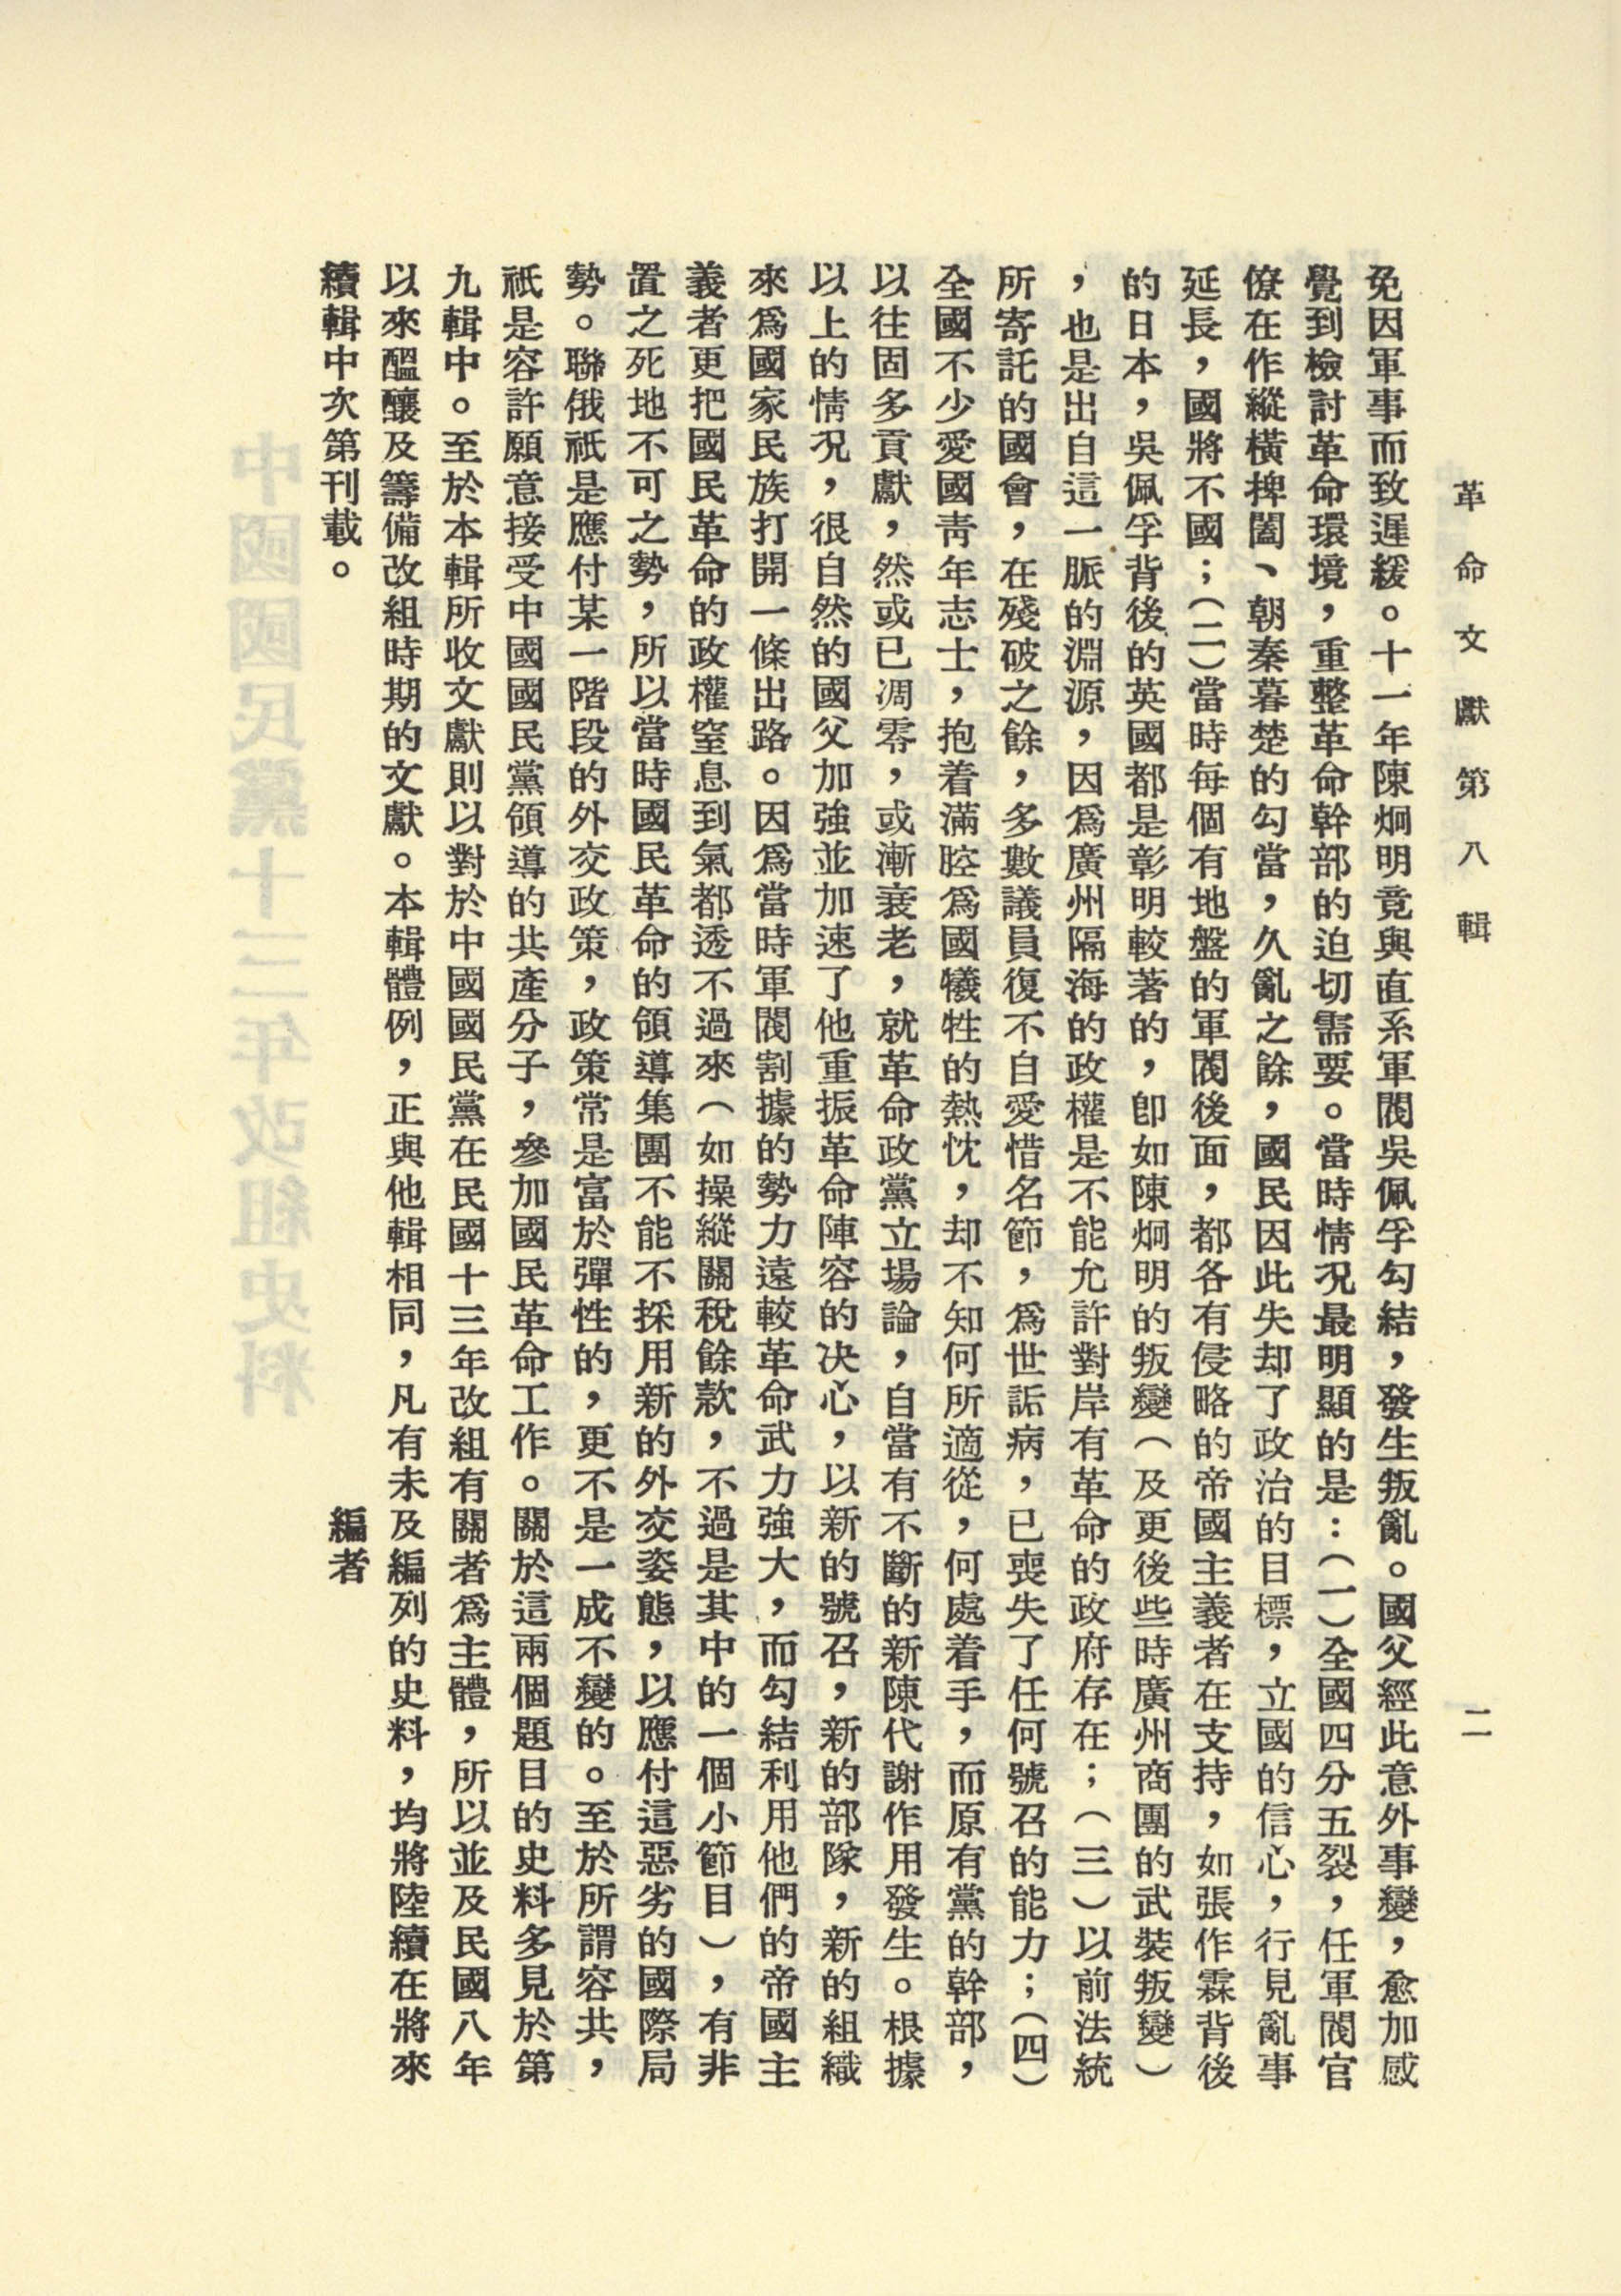 革命文獻第八輯
二
免因軍事而致遲緩。十一年陳炯明竟與直系軍閥吳佩孚勾結，發生叛亂。國父經此意外事變，愈加感
覺到檢討革命環境，重整革命幹部的迫切需要。當時情況最明顯的是：（一）全國四分五裂，任軍閥官
僚在作縱橫捭闔、朝秦暮楚的勾當，久亂之餘，國民因此失却了政治的目標，立國的信心，行見亂事
延長，國將不國；（二）當時每個有地盤的軍閥後面，都各有侵略的帝國主義者在支持，如張作霖背後
的日本，吳佩孚背後的英國都是彰明較著的，卽如陳炯明的叛變（及更後些時廣州商團的武裝叛變）
，也是出自這一脈的淵源，因爲廣州隔海的政權是不能允許對岸有革命的政府存在；（三）以前法統
所寄託的國會，在殘破之餘，多數議員復不自愛惜名節，爲世詬病，已喪失了任何號召的能力；（四）
全國不少愛國靑年志士，抱着滿腔爲國犧牲的熱忱，却不知何所適從，何處着手，而原有黨的幹部，
以往固多貢獻，然或已凋零，或漸衰老，就革命政黨立場論，自當有不斷的新陳代謝作用發生。根據
以上的情況，很自然的國父加強並加速了他重振革命陣容的決心，以新的號召，新的部隊，新的組織
來爲國家民族打開一條出路。因爲當時軍閥割據的勢力遠較革命武力強大，而勾結利用他們的帝國主
義者更把國民革命的政權窒息到氣都透不過來（如操縱關稅餘款，不過是其中的一個小節目），有非
置之死地不可之勢，所以當時國民革命的領導集團不能不採用新的外交姿態，以應付這惡劣的國際局
勢。聯俄祇是應付某一階段的外交政策，政策常是富於彈性的，更不是一成不變的。至於所謂容共，
祇是容許願意接受中國國民黨領導的共產分子，參加國民革命工作。關於這兩個題目的史料多見於第
九輯中。至於本輯所收文獻則以對於中國國民黨在民國十三年改組有關者爲主體，所以並及民國八年
以來醞釀及籌備改組時期的文獻。本輯體例，正與他輯相同，凡有未及編列的史料，均將陸續在將來
續輯中次第刊載。
編者